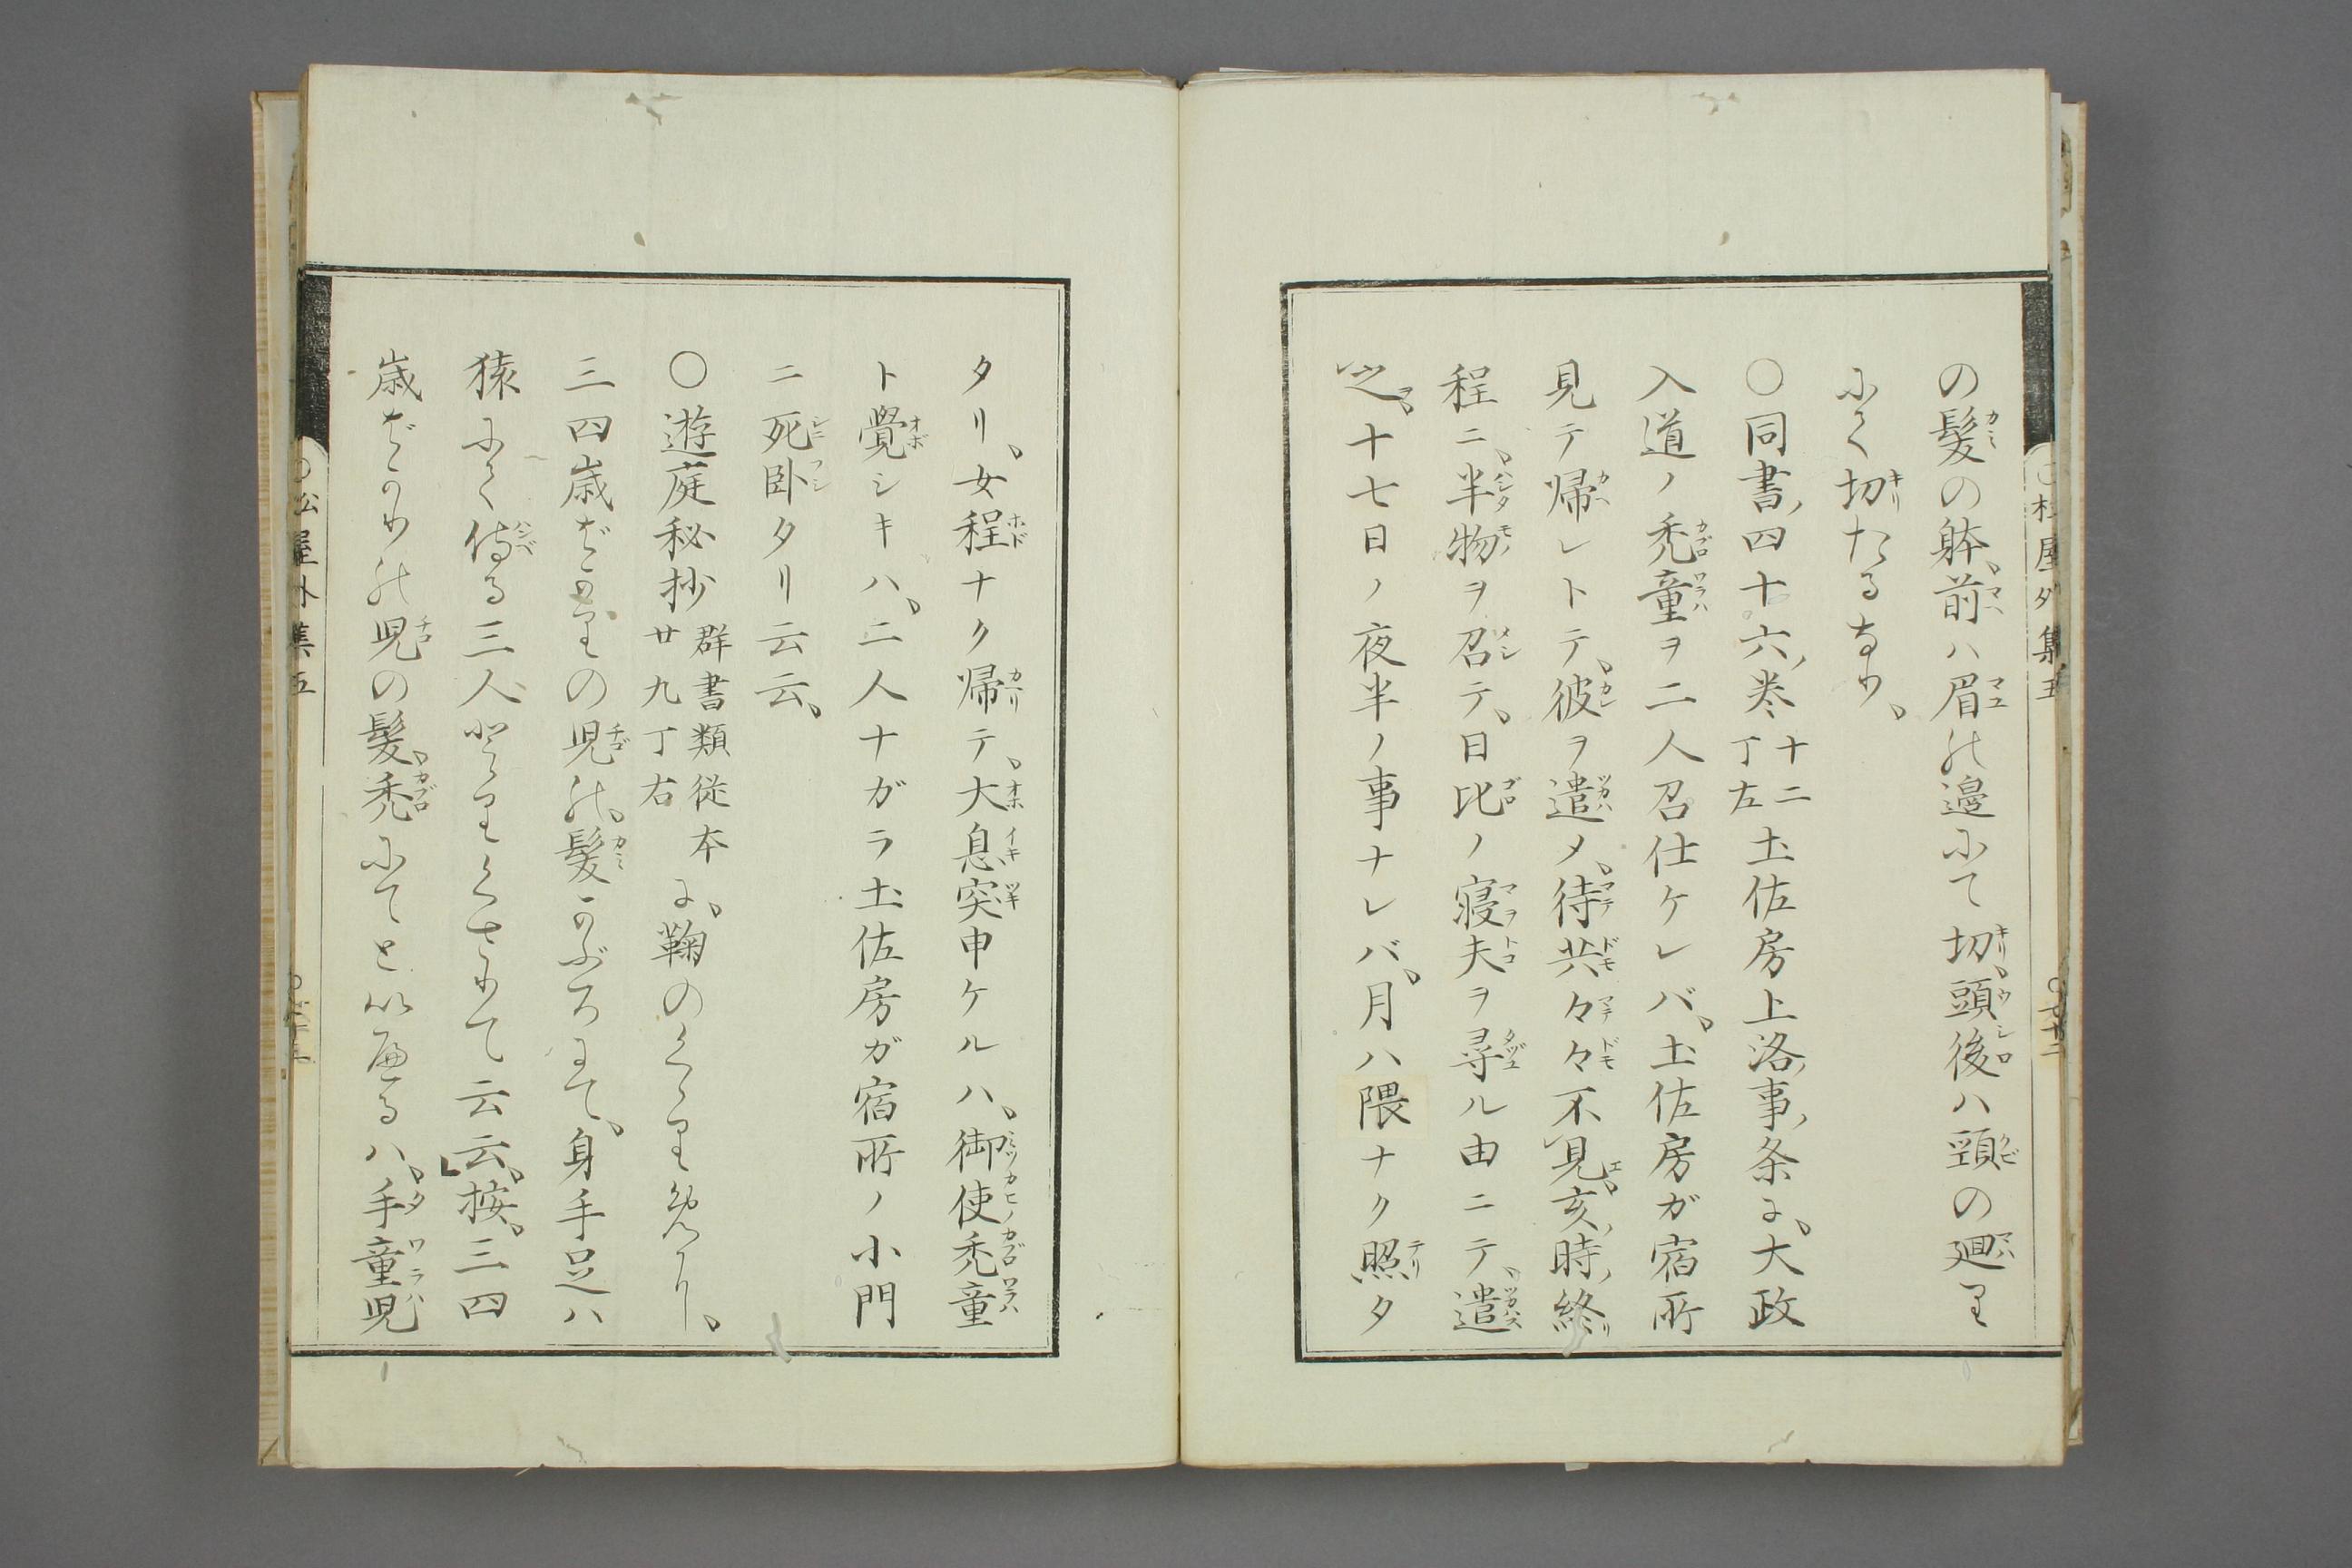 の髪の躰、前ハ眉の邊にて切、頭後ハ頸の廻り
にて切たるなり、
〇同書、四十六、巻十二丁左土佐房上洛事、条に、大政
入道ノ禿童ヲ二人召仕ケレバ、土佐房ガ宿所
見テ帰レトテ、彼ヲ遣メ、待共々々不見、亥ノ時ノ終
程ニ、半物ヲ召テ、日比ノ寝夫ヲ尋ル由ニテ、遣
之、十七日ノ夜半ノ事ナレバ、月ハ隈ナク照タ
タリ、女程ナク帰テ、大息突申ケルハ、御使禿童
ト覺シキハ、二人ナガラ土佐房ガ宿所ノ小門
ニ死臥タリ云云、
〇遊庭秘抄群書類従本廿九丁右に、鞠のくゝり
三四歳ばかりの児の、髪かぶろにて、身手足ハ
猿にて侍る三人とりくさりて云云、按、三四
歳ばかりの児の髪、禿にてと以へるハ、手童児
〇松屋外集五